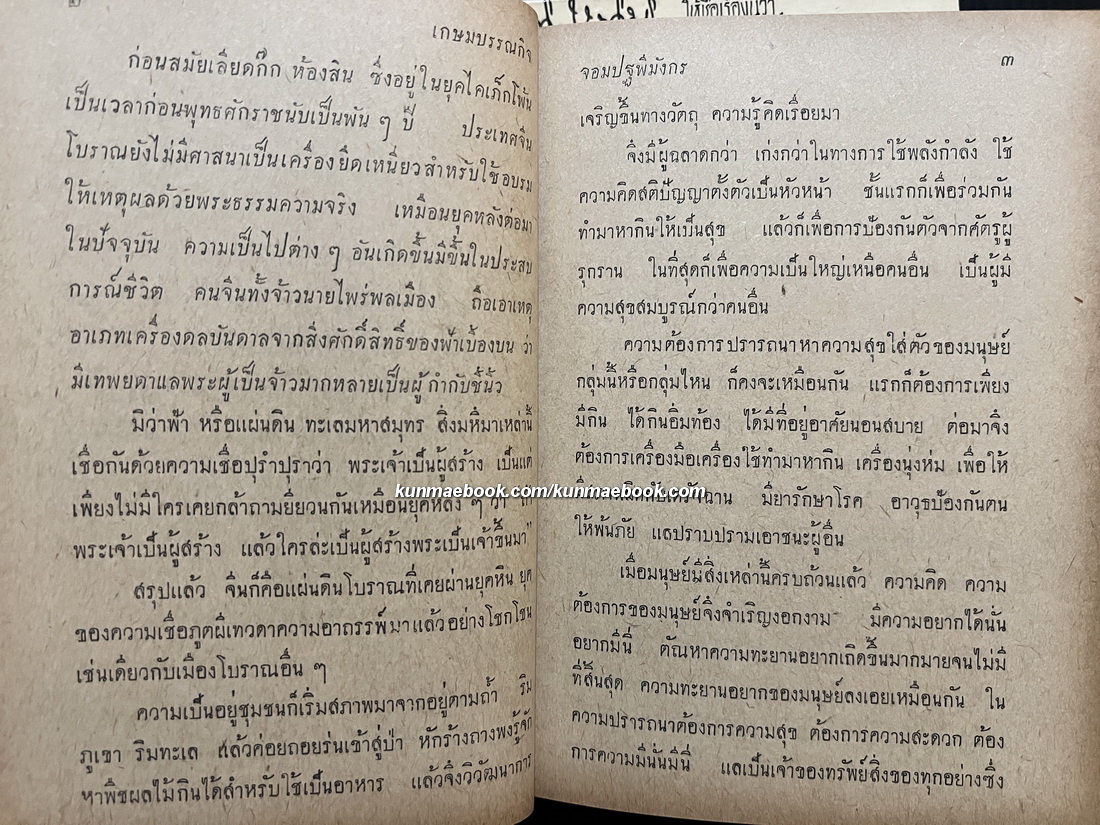 ให้ชื่อเรื่องนี้ว่า
๒
เกษมบรรณกิจ
ก่อนสมัยเลียดก๊ก ห้องสิน ซึ่งอยู่ในยุคไคเภ็กโพ้น
เป็นเวลาก่อนพุทธศักราชนับเป็นพัน ๆ ปี ประเทศจีน
โบราณยังไม่มีศาสนาเป็นเครื่องยึดเหนี่ยวสำหรับใช้อบรม
ให้เหตุผลด้วยพระธรรมความจริง เหมือนยุคหลังต่อมา
ในปัจจุบัน ความเป็นไปต่าง ๆ อันเกิดขึ้นมีขึ้นในประสบ
การณ์ชีวิต คนจีนทั้งจ้าวนายไพร่พลเมือง ถือเอาเหตุ
อาเภทเครื่องดลบันดาลจากสิ่งศักดิ์สิทธิ์ของฟ้าเบื้องบน ว่า
มีเทพยดาแลพระผู้เป็นจ้าวมากหลายเป็นผู้กำกับชี้นิ้ว
มิว่าฟ้า หรือแผ่นดิน ทะเลมหาสมุทร สิ่งมหึมาเหล่านี้
เชื่อกันด้วยความเชื่อปุรำปุราว่า พระเจ้าเป็นผู้สร้าง เป็นแต่
เพียงไม่มีใครเคยกล้าถามยียวนกันเหมือนยุคหลัง ๆ ว่า "ถ้า
พระเจ้าเป็นผู้สร้าง แล้วใครล่ะเป็นผู้สร้างพระเป็นเจ้าขึ้นมา"
สรุปแล้ว จีนก็คือแผ่นดินโบราณที่เคยผ่านยุคหิน ยุค
ของความเชื่อภูตผีเทวดาความอาถรรพ์มาแล้วอย่างโชกโชน
เช่นเดียวกับเมืองโบราณอื่น ๆ
ความเป็นอยู่ชุมชนก็เริ่มสภาพมาจากอยู่ตามถ้ำ ริม
ภูเขา ริมทะเล แล้วค่อยถอยร่นเข้าสู่ป่า หักร้างถางพงรู้จัก
หาพืชผลไม้กินได้สำหรับใช้เป็นอาหาร แล้วจึงวิวัฒนาการ
จอมปฐพีมังกร
๓
เจริญขึ้นทางวัตถุ ความรู้คิดเรื่อยมา
จึงมีผู้ฉลาดกว่า เก่งกว่าในทางการใช้พลังกำลัง ใช้
ความคิดสติปัญญาตั้งตัวเป็นหัวหน้า ชั้นแรกก็เพื่อร่วมกัน
ทำมาหากินให้เป็นสุข แล้วก็เพื่อการป้องกันตัวจากศัตรูผู้
รุกราน ในที่สุดก็เพื่อความเป็นใหญ่เหนือคนอื่น เป็นผู้มี
ความสุขสมบูรณ์กว่าคนอื่น
ความต้องการปรารถนาหาความสุขใส่ตัวของมนุษย์
กลุ่มนี้หรือกลุ่มไหน ก็คงจะเหมือนกัน แรกก็ต้องการเพียง
มีกิน ได้กินอิ่มท้อง ได้มีที่อยู่อาศัยนอนสบาย ต่อมาจึง
ต้องการเครื่องมือเครื่องใช้ทำมาหากิน เครื่องนุ่งห่ม เพื่อให้
มียารักษาโรค อาวุธป้องกันตน
ให้พ้นภัย แลปราบปรามเอาชนะผู้อื่น
เมื่อมนุษย์มีสิ่งเหล่านี้ครบถ้วนแล้ว ความคิด ความ
ต้องการของมนุษย์จึงจำเริญงอกงาม มีความอยากได้นั่น
อยากมีนี่ ตัณหาความทะยานอยากเกิดขึ้นมากมายจนไม่มี
ที่สิ้นสุด ความทะยานอยากของมนุษย์ลงเอยเหมือนกัน ใน
ความปรารถนาต้องการความสุข ต้องการความสะดวก ต้อง
การความมีนั่นมีนี่ แลเป็นเจ้าของทรัพย์สิ่งของทุกอย่างซึ่ง
kunmaebook.com/kunmaebook.com